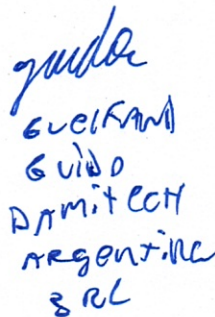 Guelfand
GUIDO
DAMITECH
ARGENTINA
SRL